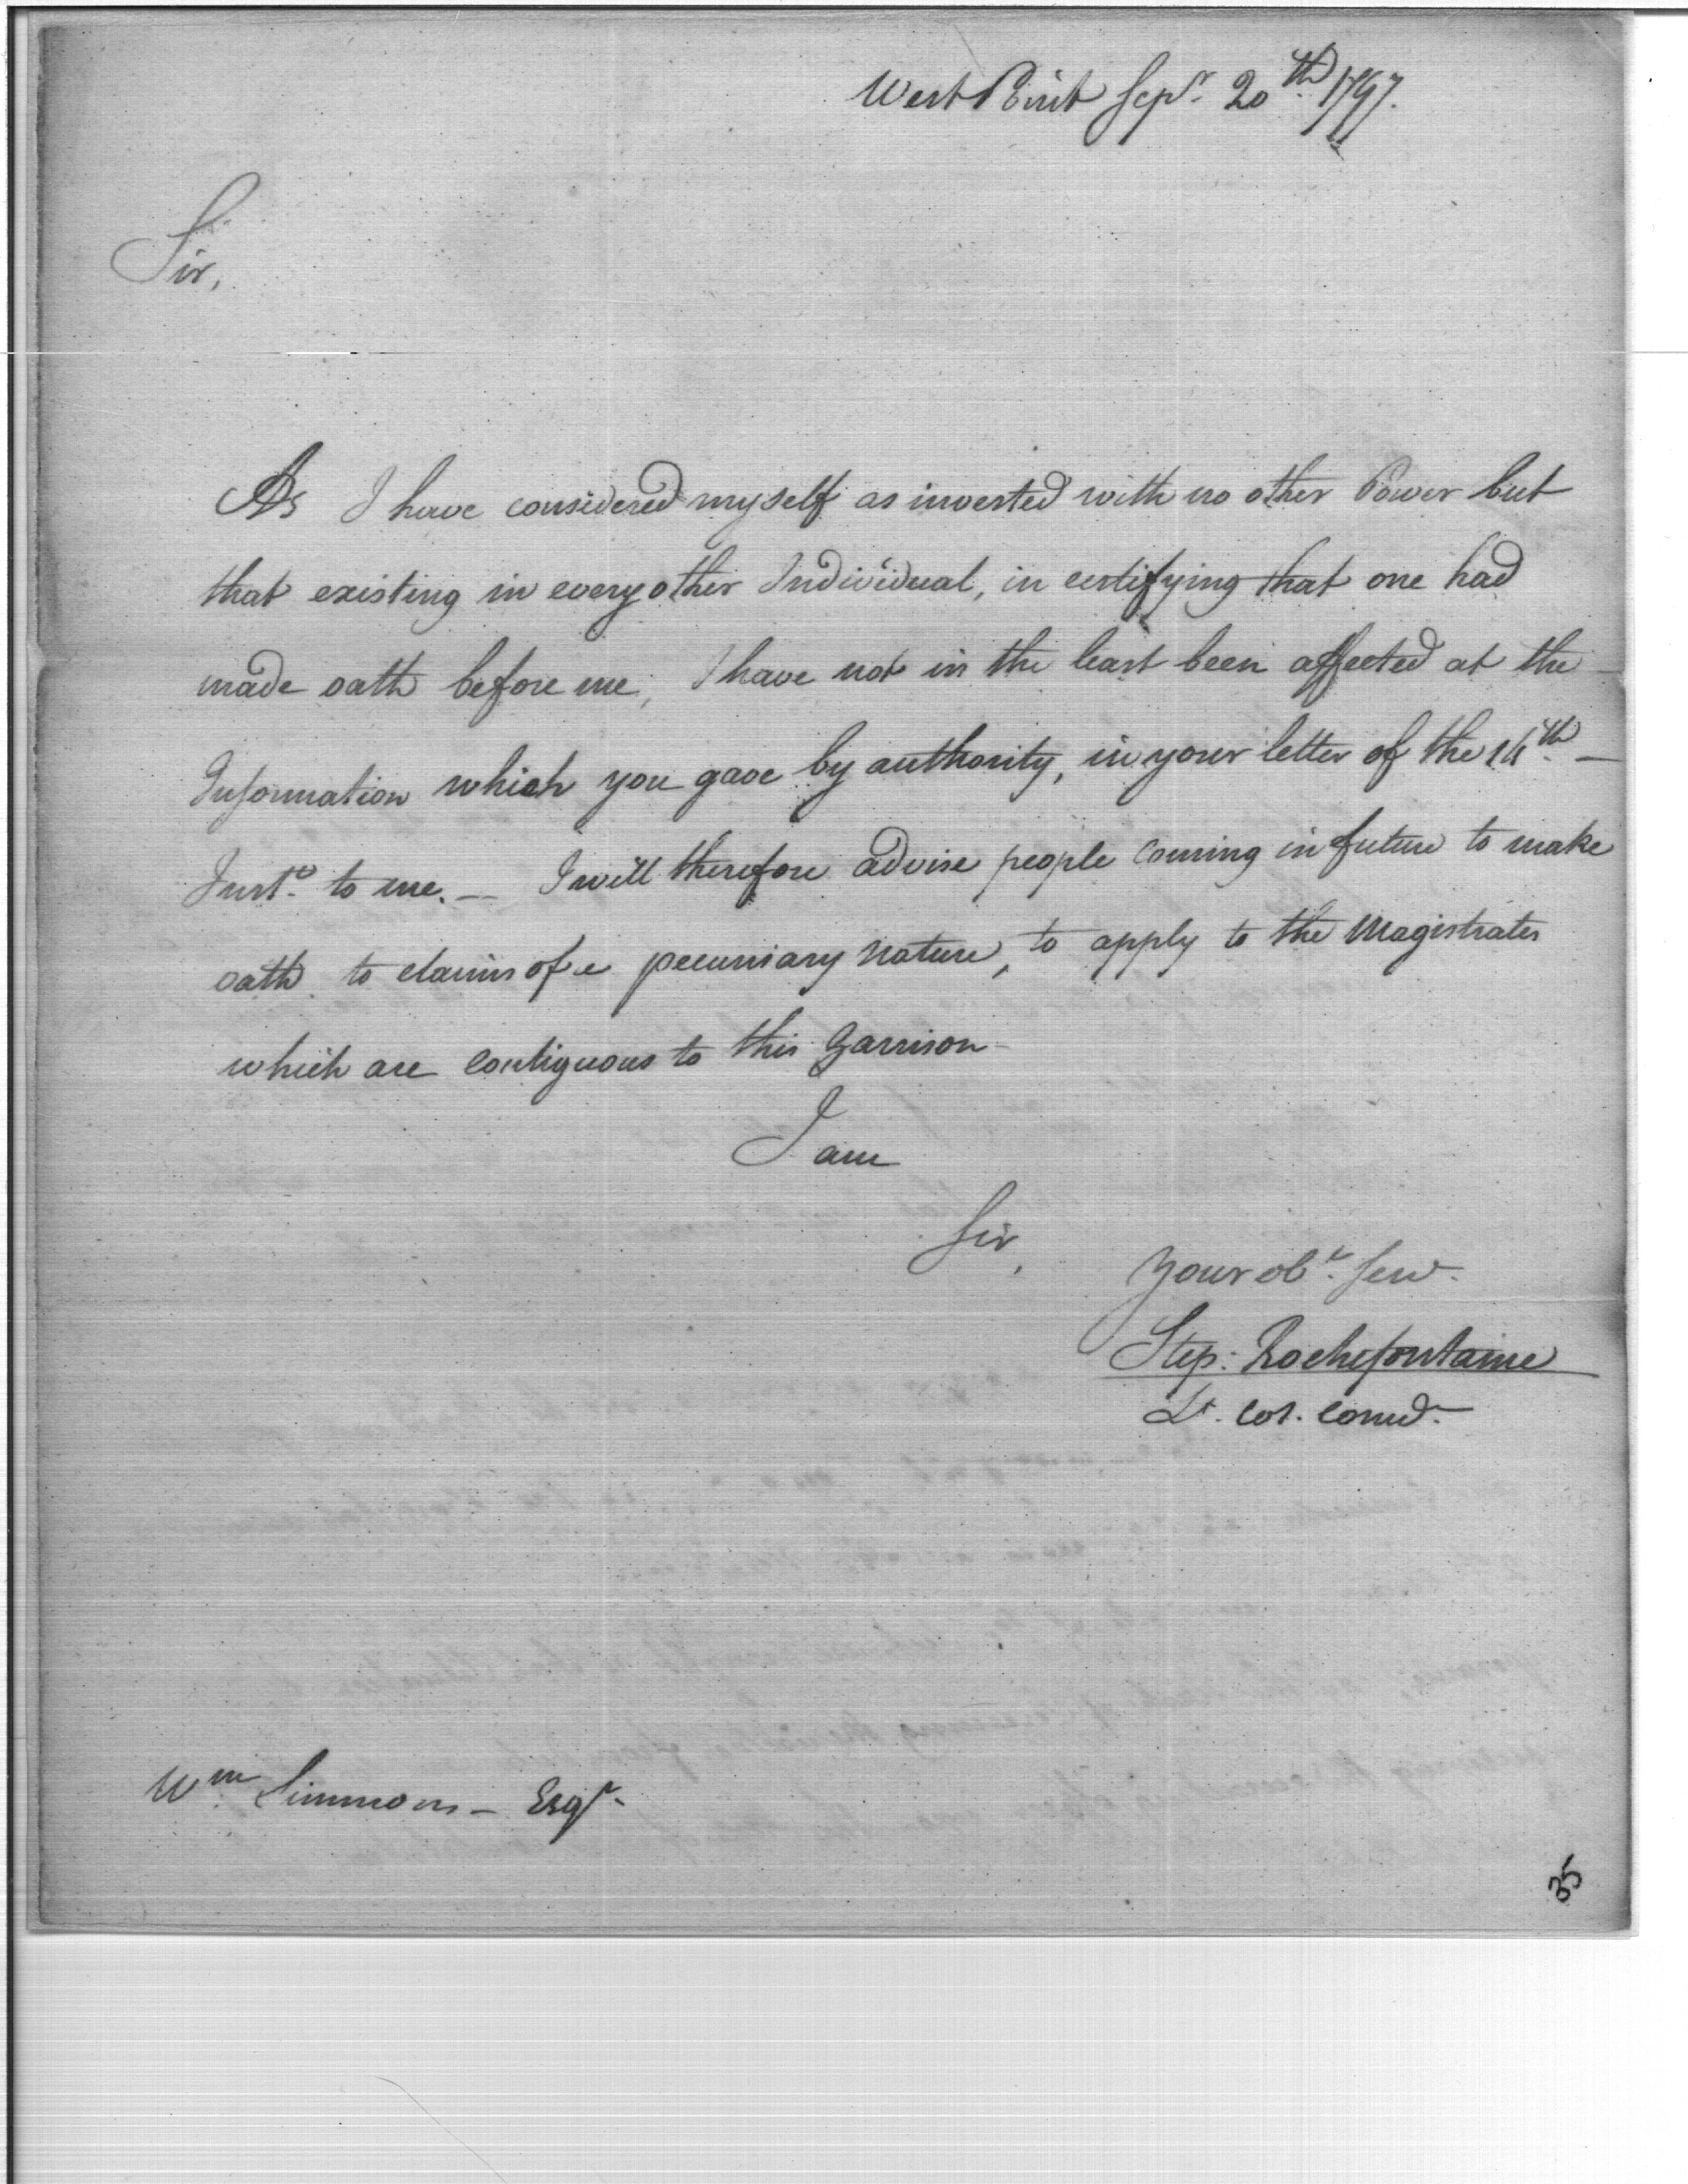 West Point Sepr. 20th. 1797.
Sir,
As I have considered myself as invested with no other Power but
that existing in every other Individual, in certifying that one had
made oath before me, I have not in the least been affected at the
Information which you gave by authority, in your letter of the 14th. —
Inst. to me. — I will therefore advise people coming in future to make
oath to claims of a pecuniary Nature, to apply to the Magistrates
which are contiguous to this Garrison
I am
Sir,
Your obt. Serv.
Step: Rochefontaine
Lt. Col. Comd.
Wm Simmons — Esqr.
35